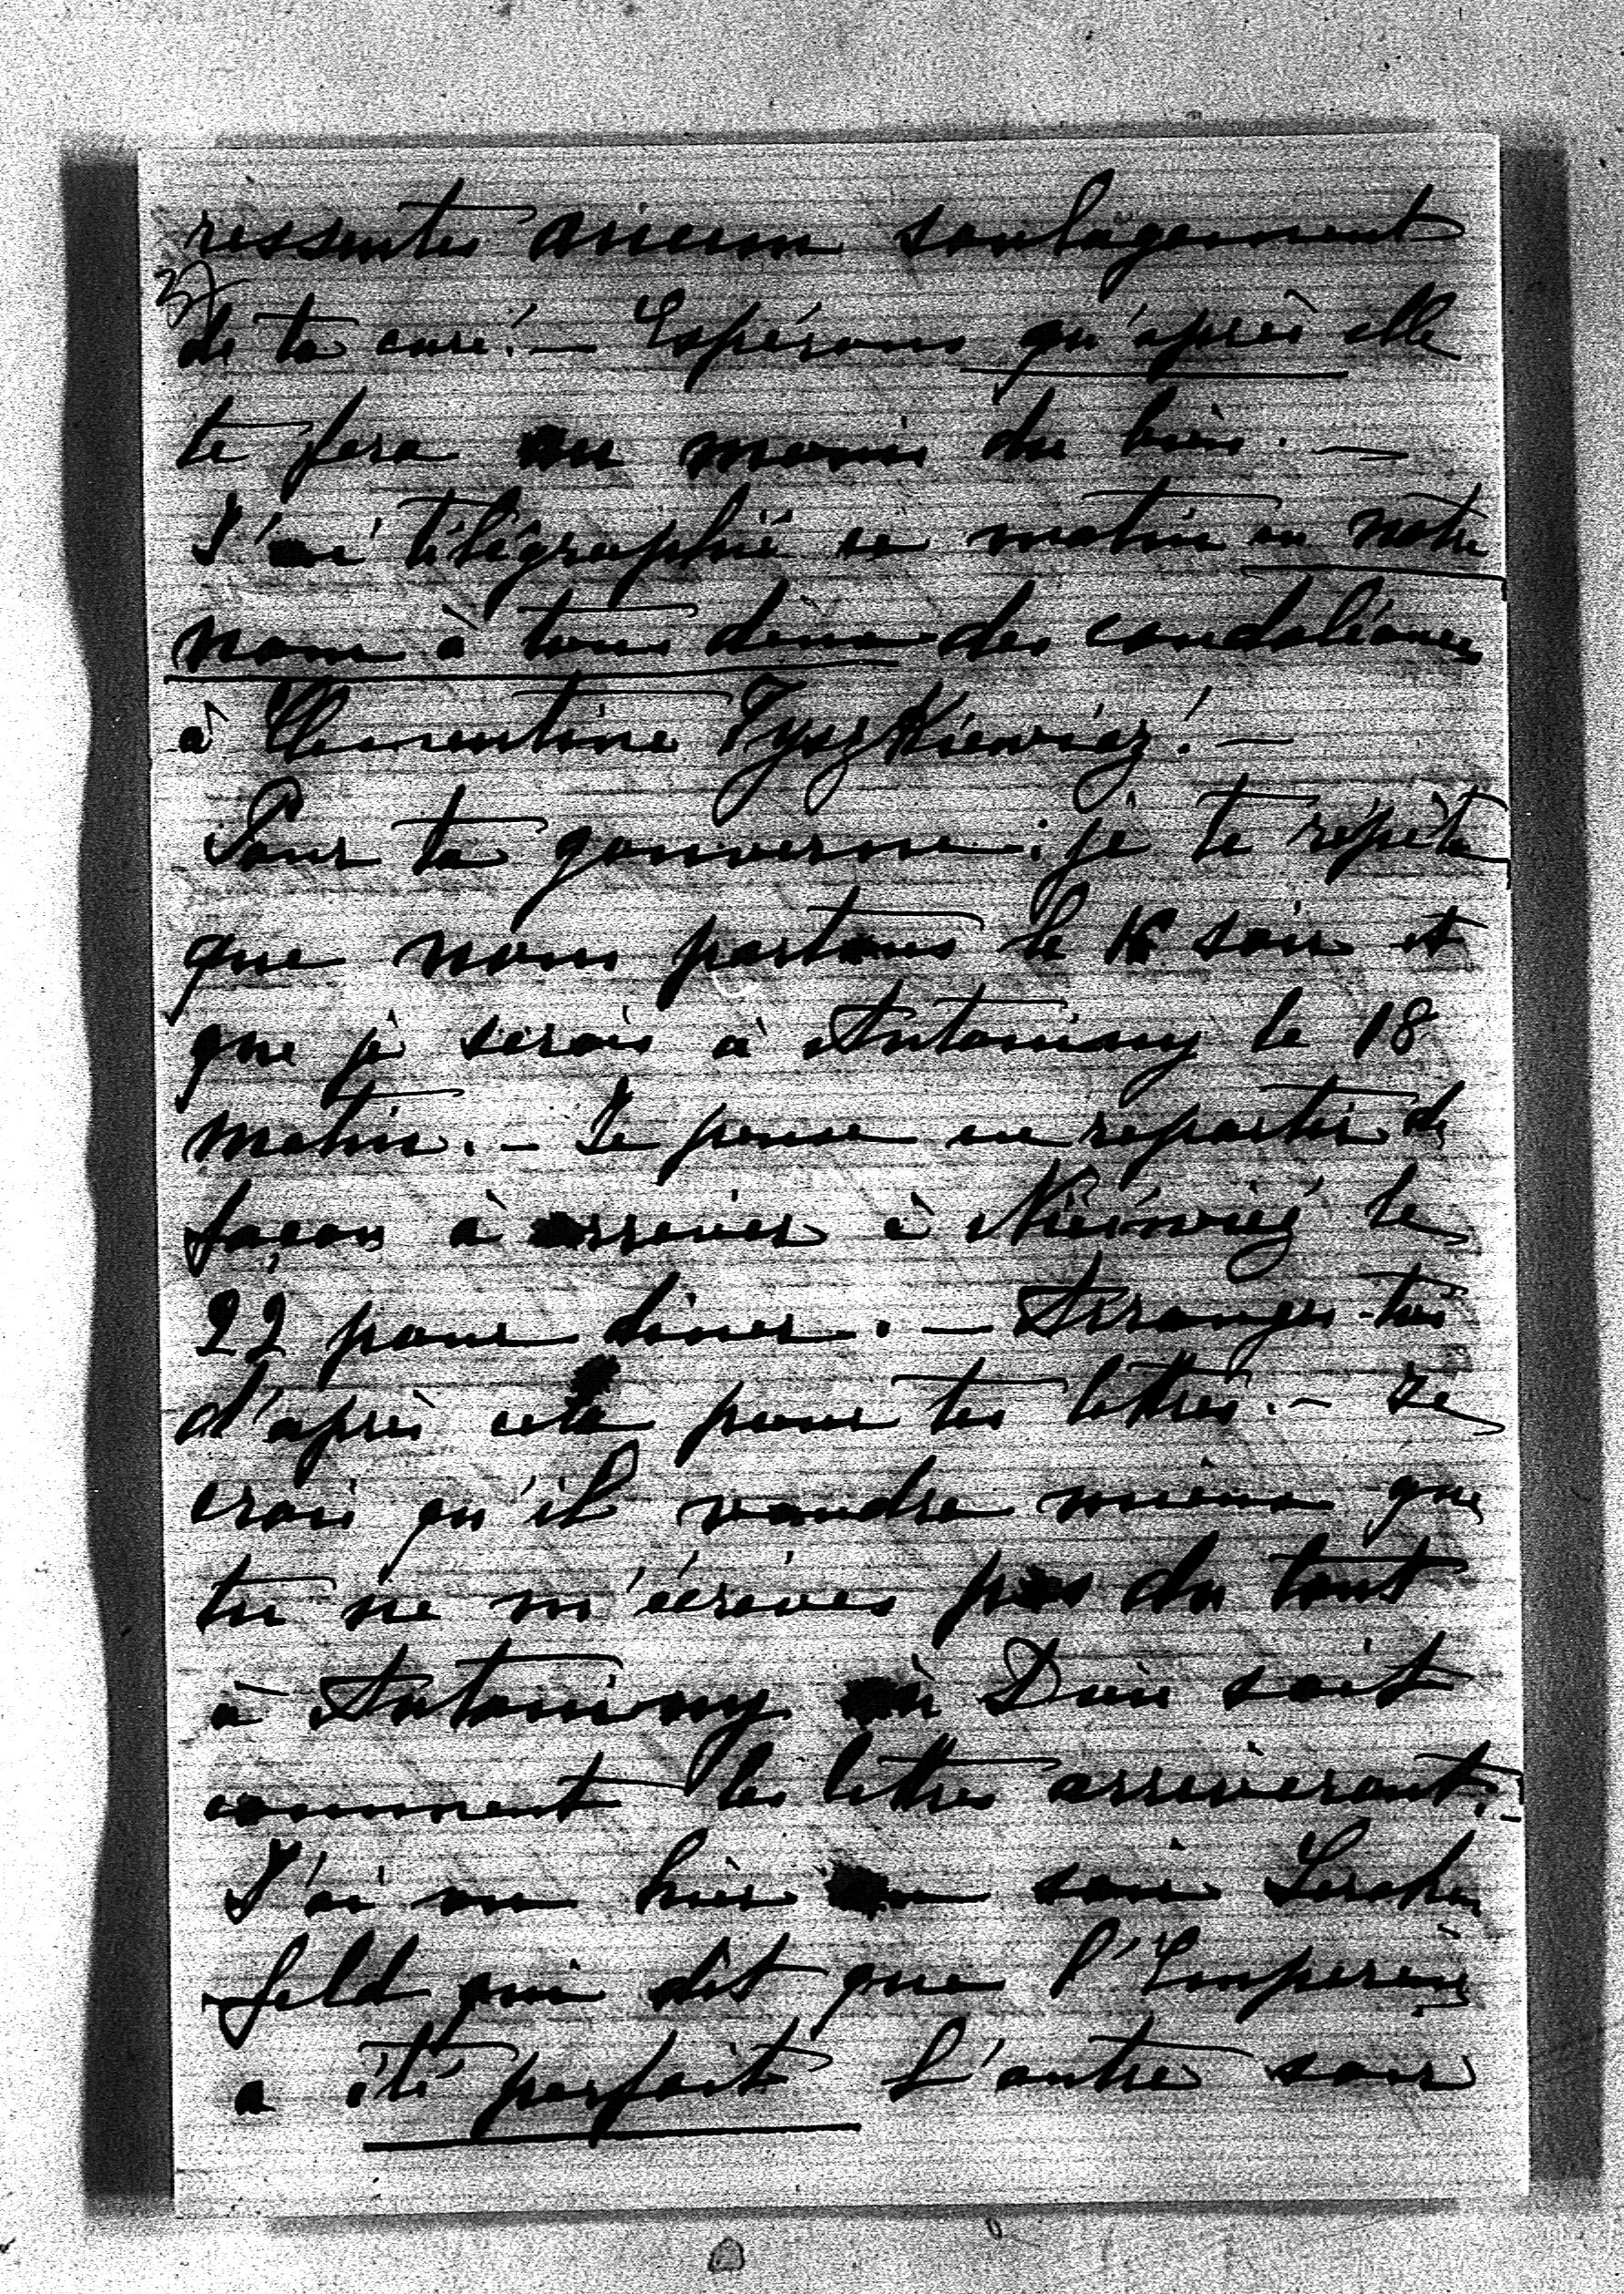 ressentes aucun soulagement
3/
de ta cure! — Espérons qu'après elle
te fera au moins du bien. —
J'ai télégraphié ce matin en notre
nom à tous deux des condoléances
à Clementine Tyszkiewicz! —
Pour ta gouverne: je te répète
que nous partons le 16 soir et
que je serais à Antoniny le 18
matin. — Je pense en repartir de
façon à arriver à Nieśwież le
22 pour diner. — Arranges-toi
d'après cela pour tes lettres. — Je
crois qu'il vaudra mieux que
tu ne m'écrives pas du tout
à Antoniny où Dieu sait
comment les lettres arriveront. —
J'ai vu hier au soir Lerchen
feld qui dit que l'Empereur
a été parfait L'autre soir